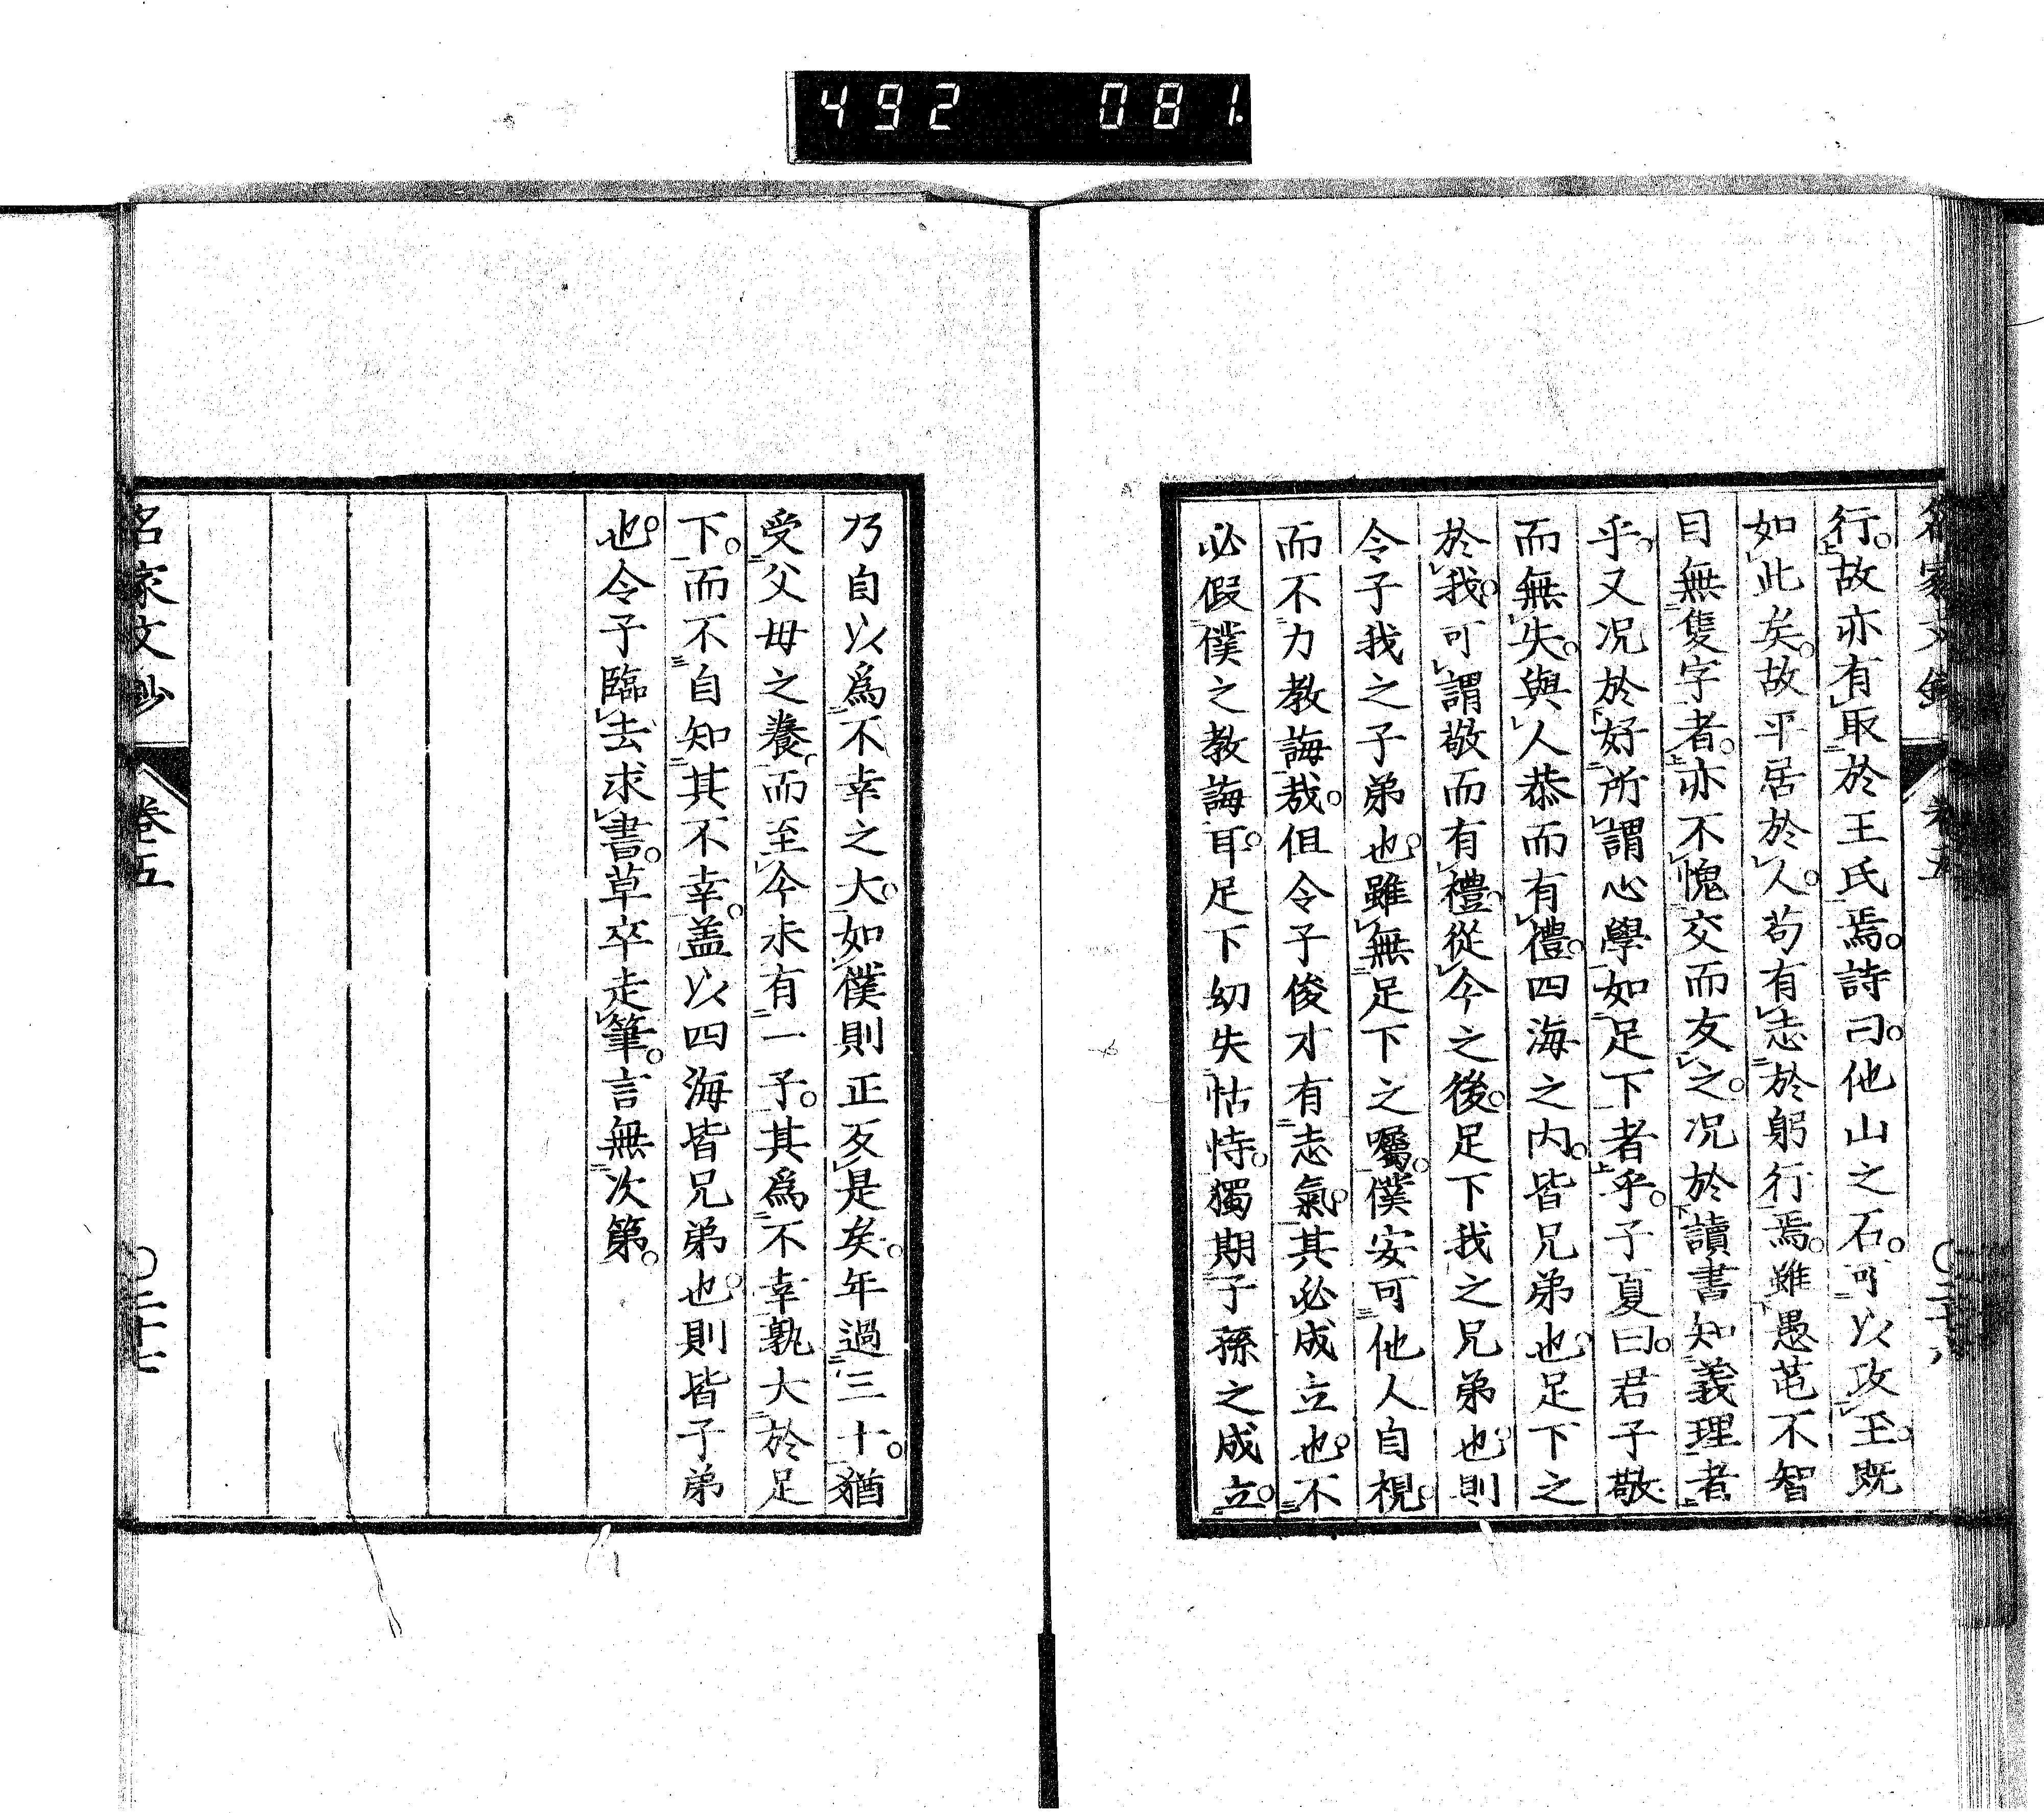 492 081
行。故亦有取於王氏焉。詩曰。他山之石。可以攻玉。既
如此矣。故平居於人。苟有志於躬行焉。雖愚芚不智
目無隻字者。亦不愧交而友之。况於讀書知義理者
乎。又况於好所謂心學如足下者乎。子夏曰。君子敬
而無失。與人恭而有禮。四海之内。皆兄弟也。足下之
於我。可謂敬而有禮。從今之後。足下我之兄弟也。則
令子我之子弟也。雖無足下之囑。僕安可他人自視。
而不力教誨哉。但令子俊才有志氣。其必成立也。不
必假僕之教誨耳。足下幼失怙恃。獨期子孫之成立。
乃自以爲不幸之大。如僕則正反是矣。年過三十。猶
受父母之養。而至今未有一子。其爲不幸孰大於足
下。而不自知其不幸。盖以四海皆兄弟也。則皆子弟
也。令子臨去求書。草卒走筆。言無次第。
名家文鈔 卷五 〇二十七